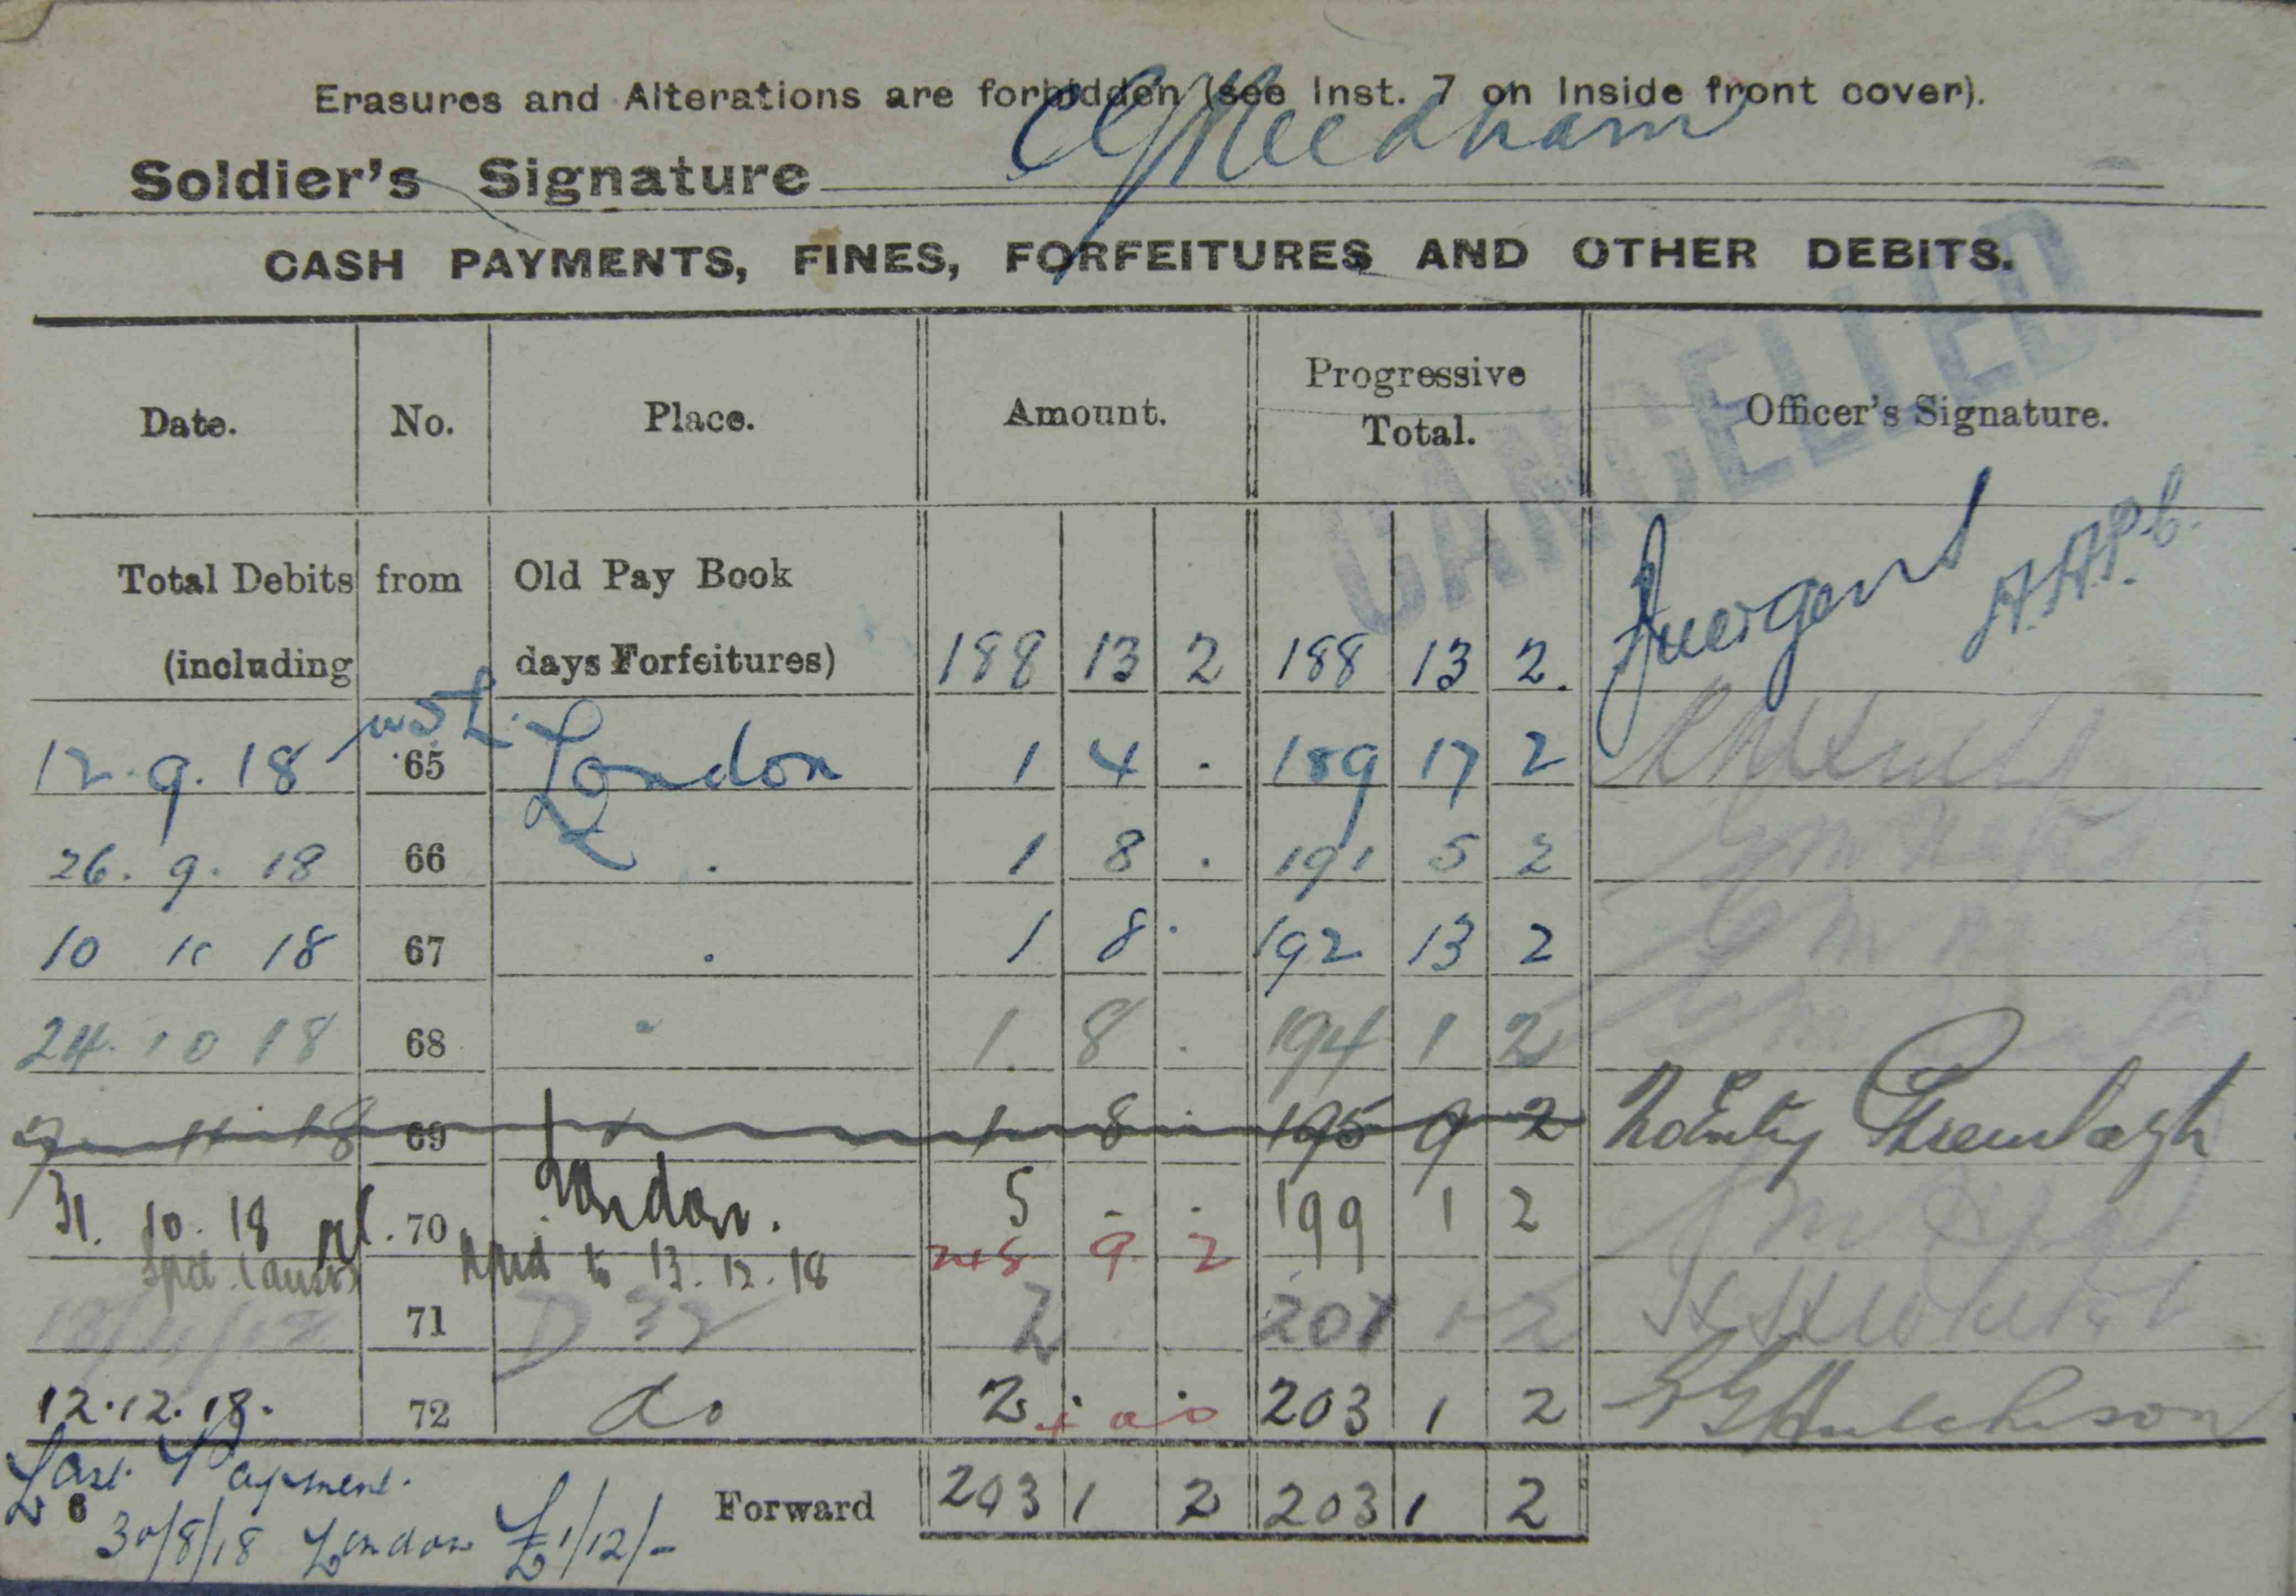 Erasures and Alterations are forbidden (see Inst. 7 on Inside front cover).
Soldier's Signature Needham
CASH PAYMENTS, FINES, FORFEITURES AND OTHER DEBITS.
CANCELLED.
Date. No. Place. Amount. Progressive Total. Officer's Signature.
Total Debits from Old Pay Book
(including days Forfeitures) 188 13 2 188 13 2.
12.9.18 65 London 1 4 . 189 17 2
26.9.18 66 . 1 8 . 191 5 2
10 10 18 67 . 1 8 . 192 13 2
24.10 18 68 " 1. 8 . 194 1 2
7 11 18 69 1 8 . 195 9 2
31. 10. 18 70 London. 5 - . 199 1 2
to 13.12.18 248 9 2
71 D 32 2 201 1 2
12.12.18. 72 do 2 . . 203 1 2 Hutchison
Forward 203 1 2 203 1 2
Last Payment.
6
30/8/18 London £1/12/-